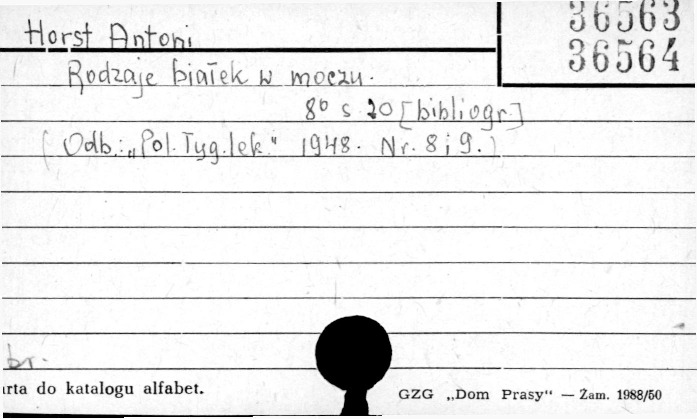 36563
Horst Antoni
36564
Rodzaje białek w moczu.
8° s. 20 [bibliogr.]
(Odb.: „Pol. Tyg. lek." 1948. Nr. 8 i 9.)
br.
arta do katalogu alfabet.
GZG „Dom Prasy" — Żam. 1988/50